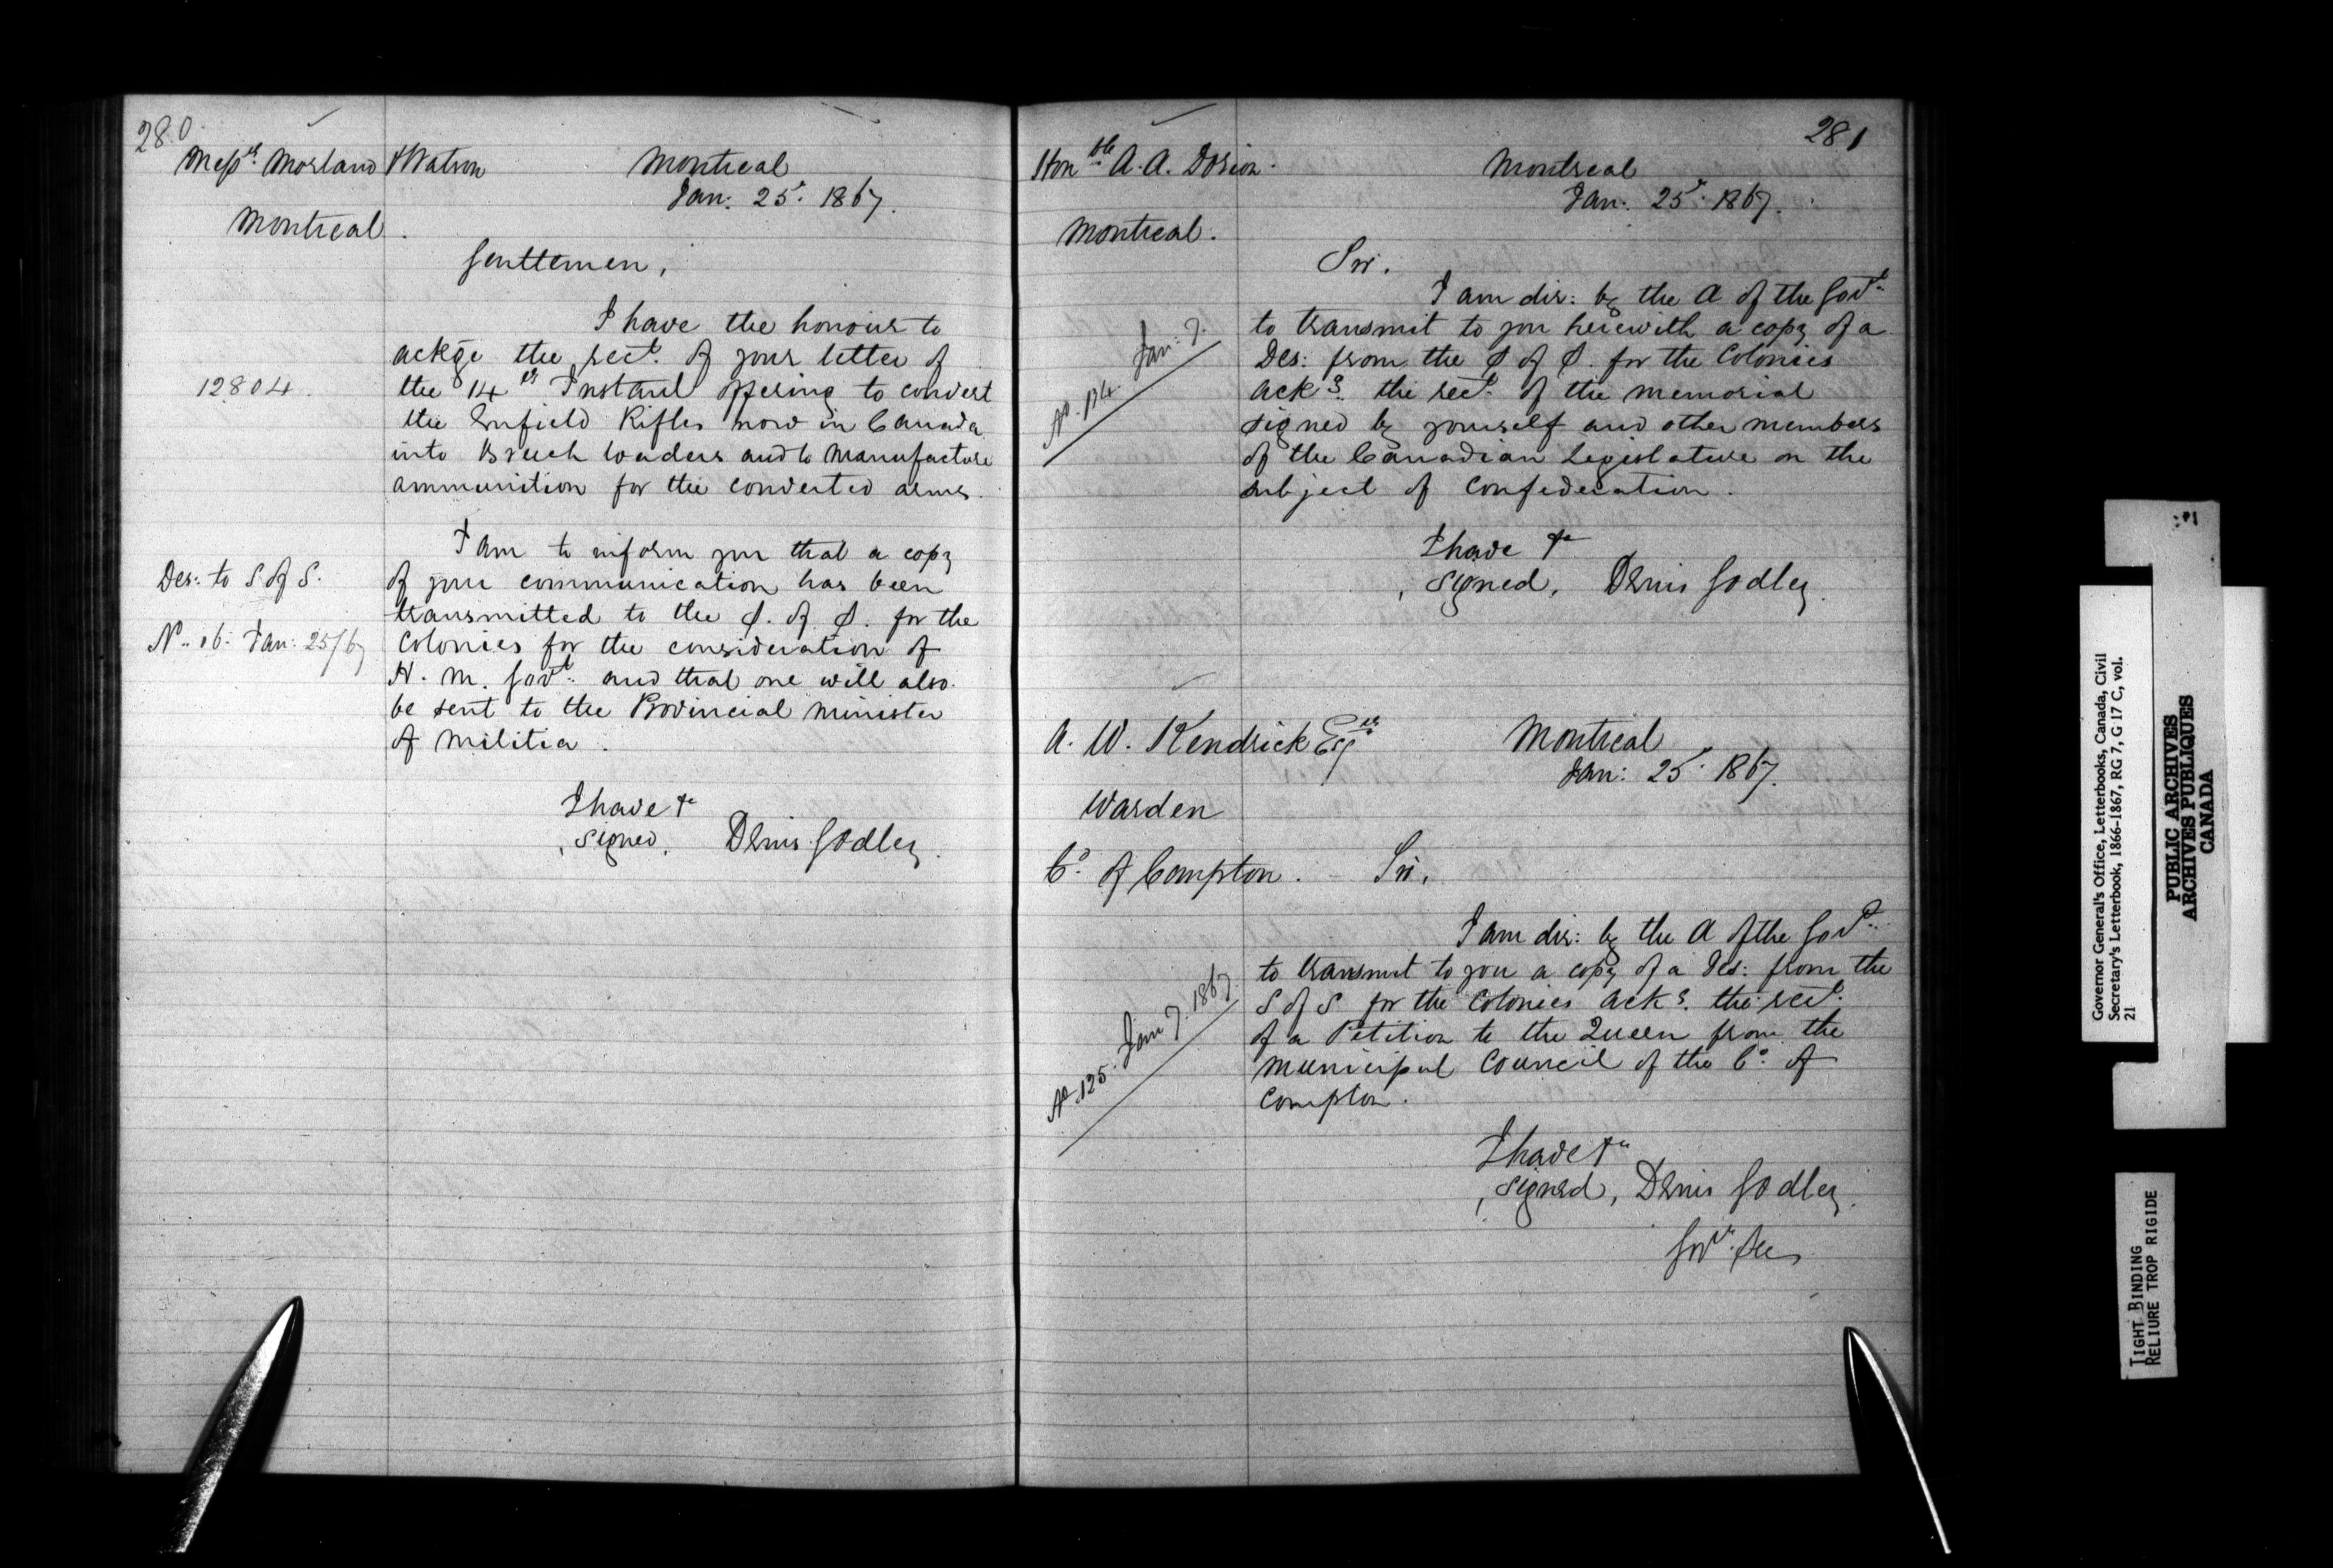 280
Messrs. Morland & Watson
Montreal
Jan: 25. 1867.
Montreal.
Gentlemen,
I have the honour to
ackge the rect. of your letter of
12804.
the 14th Instant offering to convert
the Enfield Rifles now in Canada
into Breech loaders and to manufacture
ammunition for the converted arms.
I am to inform you that a copy
Des: to S of S.
of your communication has been
transmitted to the S. of S. for the
No. 16. Jan: 25/67
Colonies for the consideration of
H. M. Govt. and that one will also
be sent to the Provincial Minister
of Militia.
I have &c
signed, Denis Godley.
281
Honble A. A. Dorion.
Montreal
Jan: 25. 1867.
Montreal.
Sir,
I am dir: by the A of the Govt.
to transmit to you herewith a copy of a
No. 124. Jan: 7.
Des: from the S of S. for the Colonies
ackg. the rect. of the memorial
signed by yourself and other members
of the Canadian Legislature on the
subject of Confederation.
I have &c
signed, Denis Godley.
A. W. Kendrick Esqre
Montreal
Jan: 25. 1867.
Warden
Co. of Compton.
Sir,
I am dir: by the A of the Govt.
to transmit to you a copy of a Des: from the
No. 125. Jan 7. 1867.
S of S for the Colonies ackg. the rect.
of a Petition to the Queen from the
Municipal Council of the Co. of
Compton.
I have &c
signed, Denis Godley.
Govr. Sec
Governor General's Office, Letterbooks, Canada, Civil
Secretary's Letterbook, 1866-1867, RG 7, G 17 C, vol.
21
PUBLIC ARCHIVES
ARCHIVES PUBLIQUES
CANADA
TIGHT BINDING
RELIURE TROP RIGIDE